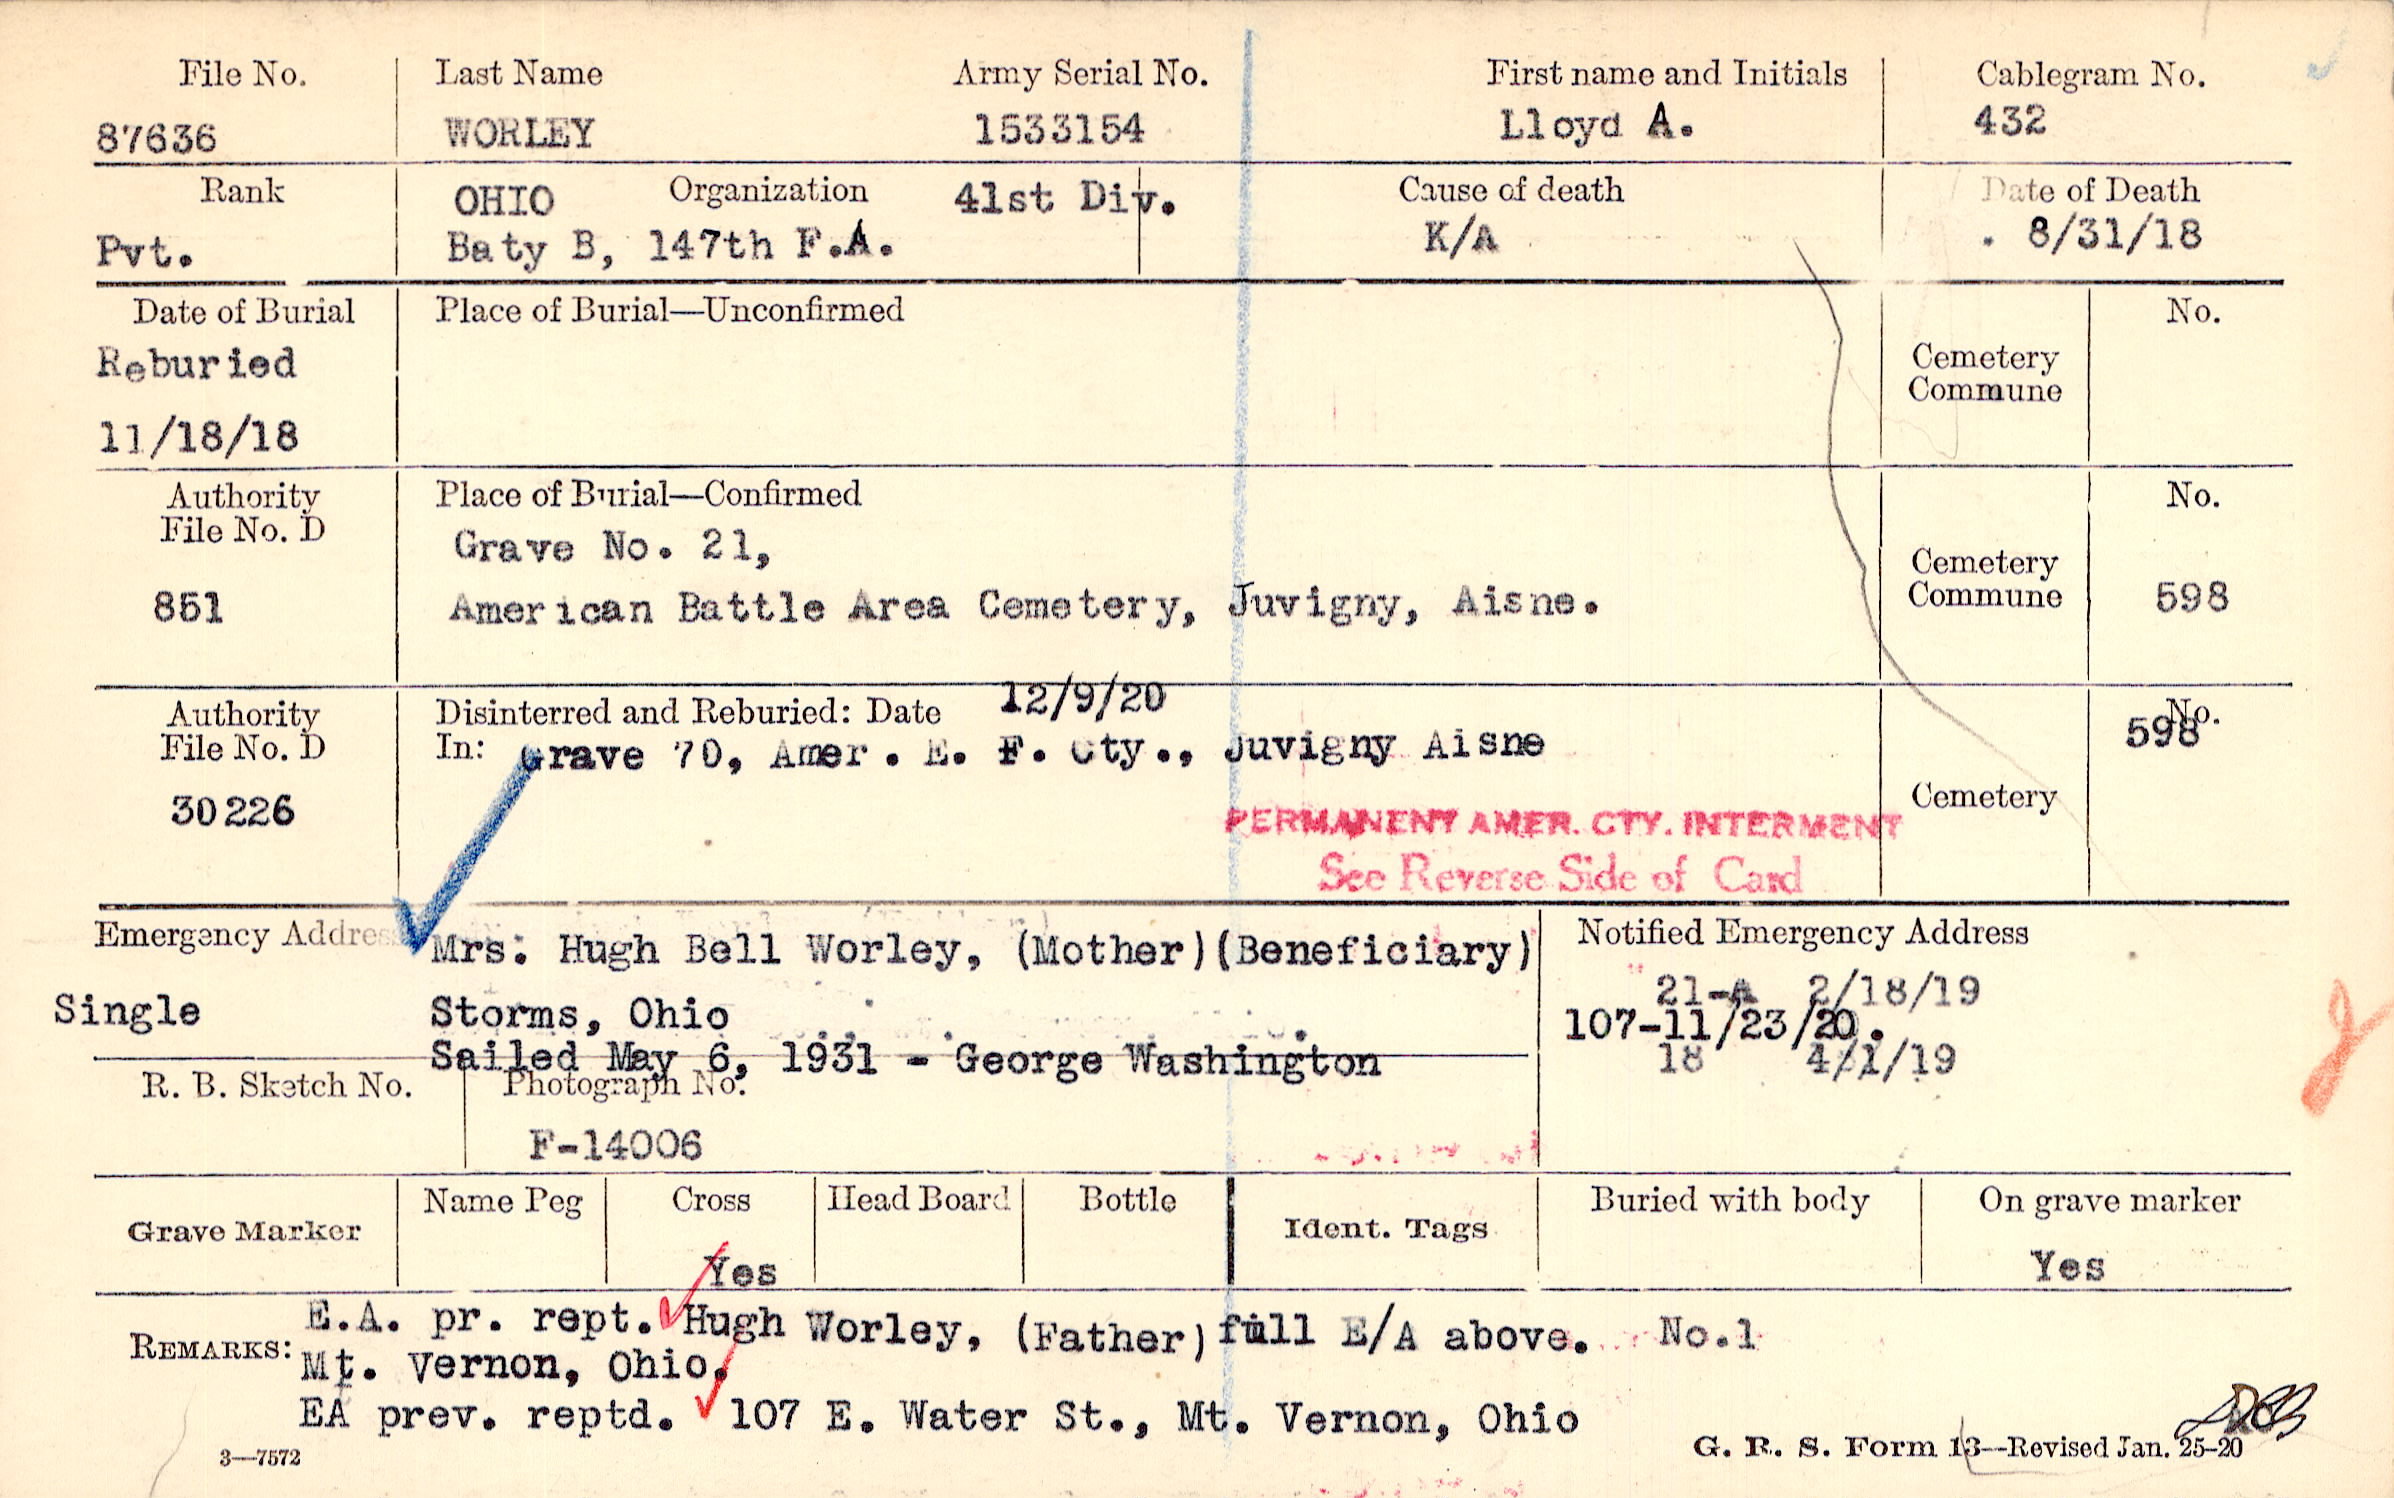 File No. Last Name Army Serial No. First name and Initials Cablegram No.
87636 WORLEY 1533154 Lloyd A. 432
Rank OHIO Organization 41st Div. Cause of death Date of Death
Pvt. Baty B, 147th F.A. K/A 8/31/18
Date of Burial Place of Burial—Unconfirmed No.
Reburied Cemetery
Commune
11/18/18
Authority Place of Burial—Confirmed No.
File No. D Grave No. 21, Cemetery
851 American Battle Area Cemetery, Juvigny, Aisne. Commune 598
Authority Disinterred and Reburied: Date 12/9/20 No.
File No. D In: Grave 70, Amer. E. F. Cty., Juvigny Aisne 598
30226 Cemetery
PERMANENT AMER. CTY. INTERMENT
See Reverse Side of Card
Emergency Address Mrs. Hugh Bell Worley, (Mother)(Beneficiary) Notified Emergency Address
21-A 2/18/19
Single Storms, Ohio 107-11/23/20.
Sailed May 6, 1931 - George Washington 18 4/1/19
R. B. Sketch No. Photograph No.
F-14006
Grave Marker Name Peg Cross Head Board Bottle Ident. Tags Buried with body On grave marker
Yes Yes
REMARKS: E.A. pr. rept. Hugh Worley, (Father) full E/A above. No.1
Mt. Vernon, Ohio.
EA prev. reptd. 107 E. Water St., Mt. Vernon, Ohio
3—7572 G. R. S. Form 13—Revised Jan. 25-20